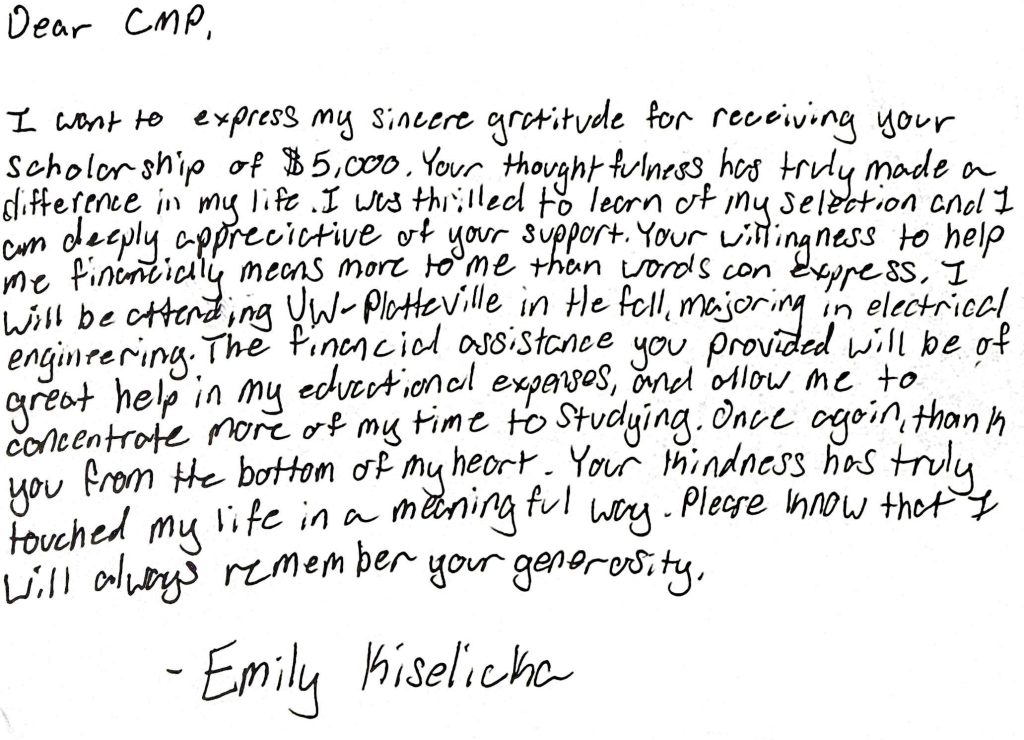 Dear CMP,
I want to express my sincere gratitude for receiving your
scholarship of $5,000. Your thoughtfulness has truly made a
difference in my life. I was thrilled to learn of my selection and I
am deeply appreciative of your support. Your willingness to help
me financially means more to me than words can express. I
will be attending UW-Platteville in the fall, majoring in electrical
engineering. The financial assistance you provided will be of
great help in my educational expenses, and allow me to
concentrate more of my time to studying. Once again, thank
you from the bottom of my heart. Your kindness has truly
touched my life in a meaningful way. Please know that I
will always remember your generosity.
- Emily Kiselicka